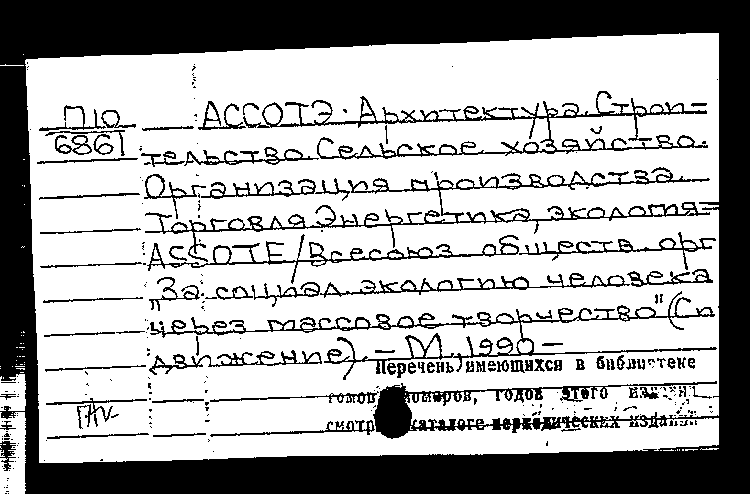 П10
6861
АССОТЭ. Архитектура. Строи-
тельство. Сельское хозяйство.
Организация производства.
Торговля. Энергетика, экология=
ASSOTE/Всесоюз. обществ. орг
"За социал. экологию человека
через массовое творчество" (Сп
движение). – М., 1990 –
Перечень имеющихся в библиотеке
томов номеров, годов этого издания
смотр каталоге периодических изданий